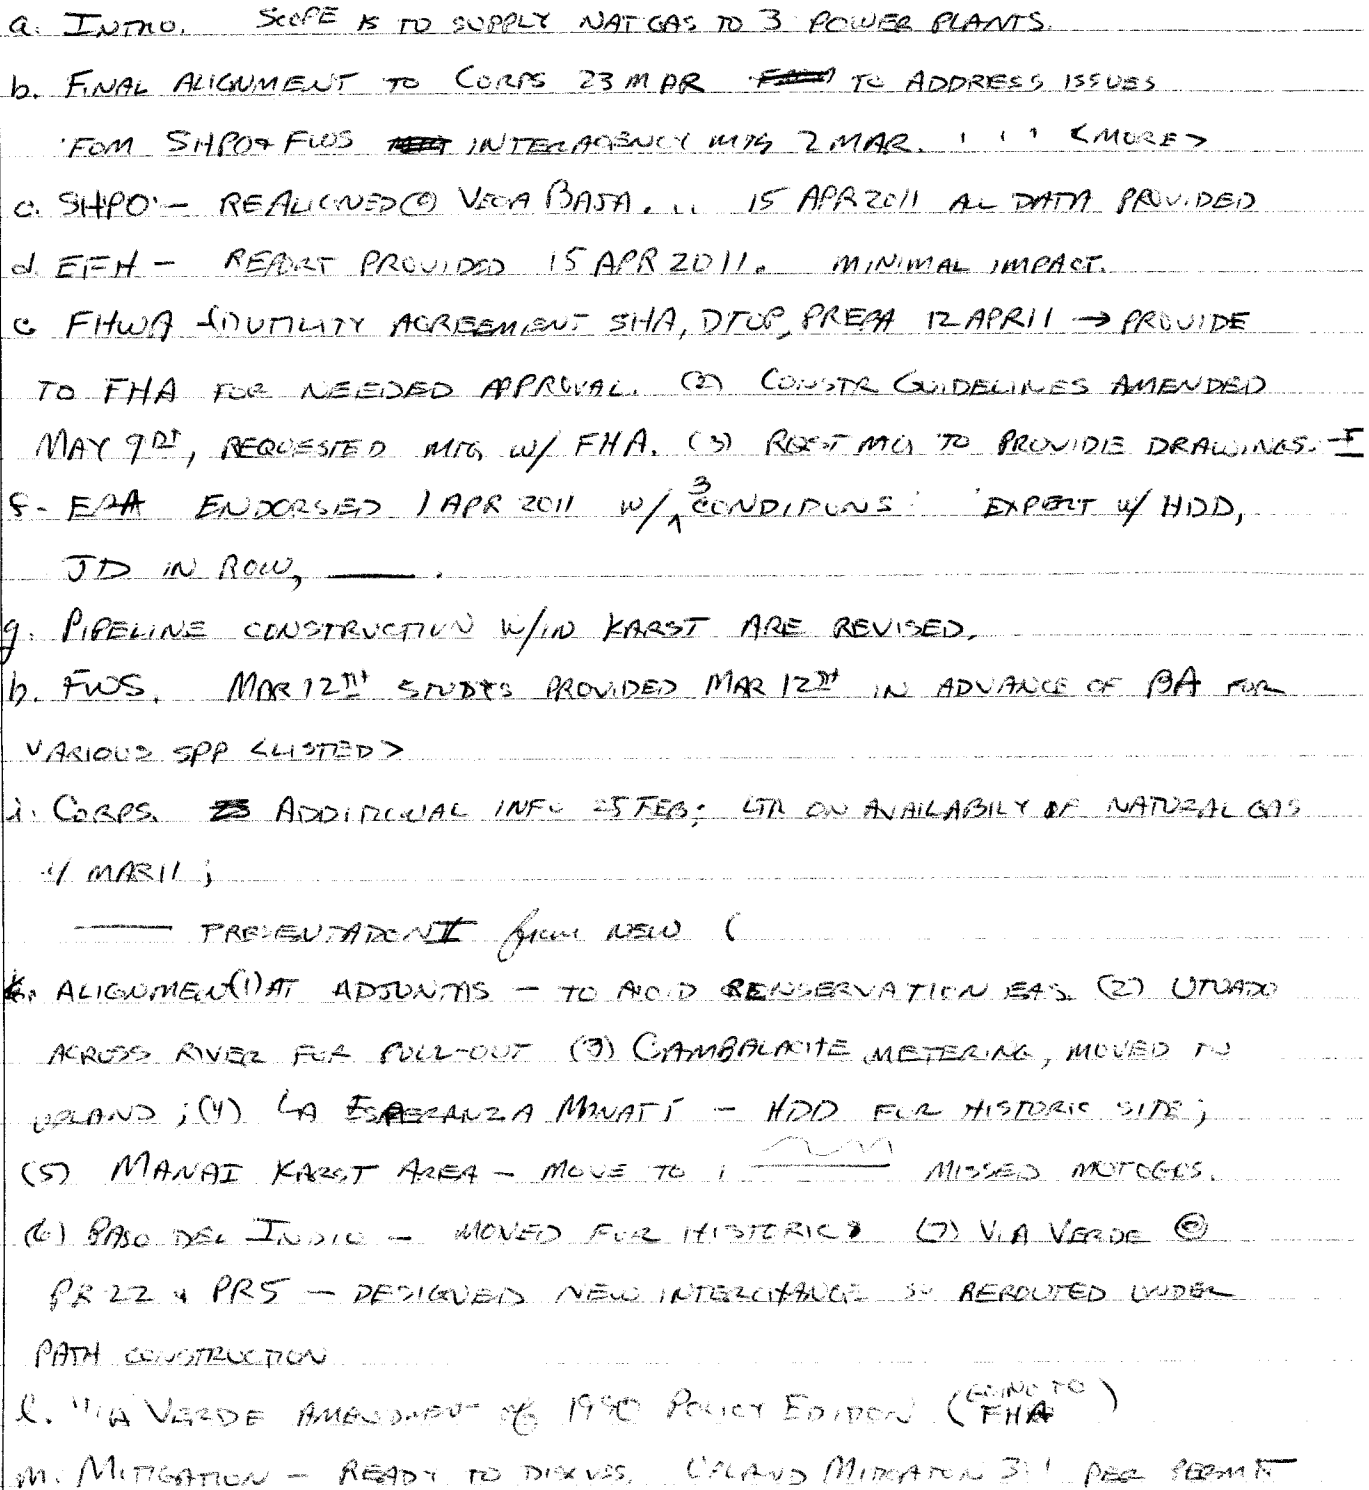 a. INTRO. SCOPE IS TO SUPPLY NAT GAS TO 3 POWER PLANTS.
b. FINAL ALIGNMENT TO CORPS 23 MAR TO ADDRESS ISSUES
FOM SHPO & FWS INTERAGENCY MTG 2 MAR. <MORE>
c. SHPO - REALIGNED @ VEGA BAJA... 15 APR 2011 ALL DATA PROVIDED
d. EFH - REPORT PROVIDED 15 APR 2011. MINIMAL IMPACT.
e FHWA - (1) UTILITY AGREEMENT SHA, DTOP, PREPA 12 APR 11 → PROVIDE
TO FHA FOR NEEDED APPROVAL. (2) CONSTR GUIDELINES AMENDED
MAY 9TH, REQUESTED MTG W/ FHA. (3) RQST MTG TO PROVIDE DRAWINGS.
f. EPA ENDORSED 1 APR 2011 W/ 3 CONDITIONS: EXPERT W/ HDD,
JD IN ROW, ____.
g. PIPELINE CONSTRUCTION W/IN KARST ARE REVISED.
h. FWS. MAR 12TH STUDIES PROVIDED MAR 12TH IN ADVANCE OF BA FOR
VARIOUS SPP <LISTED>
i. CORPS. ADDITIONAL INFO 25 FEB; LTR ON AVAILABILY OF NATURAL GAS
MAR 11 ;
____ PRESENTATION from NEW (
k. ALIGNMENT (1) AT ADJUNTAS - TO AVOID CONSERVATION EAS. (2) UTUADO
ACROSS RIVER FOR PULL-OUT (3) CAMBALACHE METERING, MOVED TO
UPLAND ; (4) LA ESPERANZA MANATI - HDD FOR HISTORIC SITE ;
(5) MANATI KARST AREA - MOVE TO ____ MISSED MOTOGES.
(6) PASO DEL INDIO - MOVED FOR HISTORIC (7) VIA VERDE @
PR 22 & PR5 - DESIGNED NEW INTERCHANGE SO REROUTED UNDER
PATH CONSTRUCTION
l. VIA VERDE AMENDMENT of 1990 POLICY EDITION (GOING TO FHA)
m. MITIGATION - READY TO DISCUSS. UPLAND MITIGATION 3:1 PER PERMIT